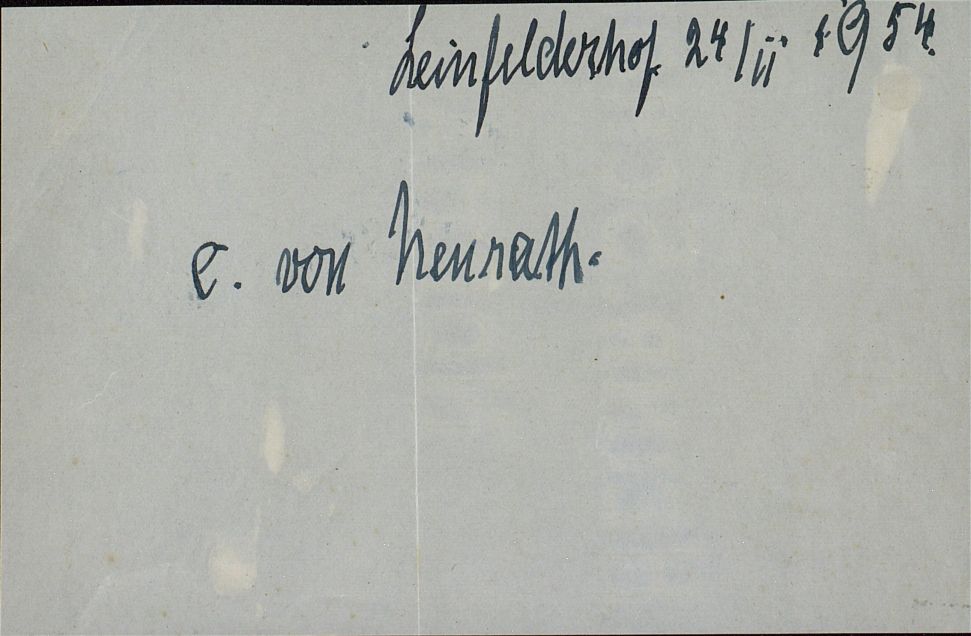 Leinfelderhof 24/II 1954.
C. von Neurath.